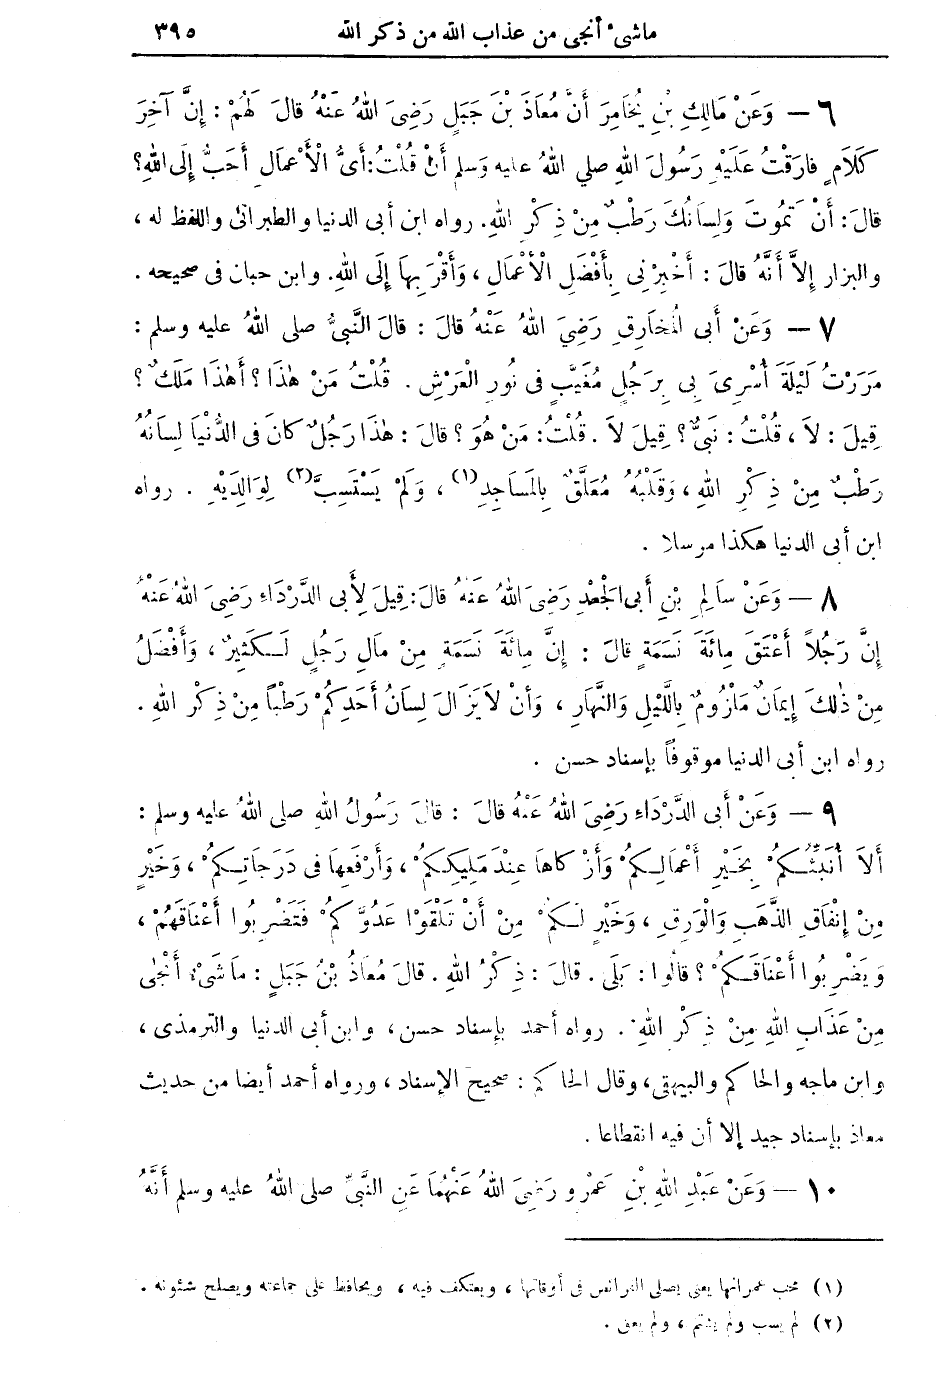 ماشىء أنجى من عذاب الله من ذكر الله ٣٩٥
٦ — وَعَنْ مَالِكِ بْنِ يُخَامِرَ أَنَّ مُعَاذَ بْنَ جَبَلٍ رَضِىَ اللهُ عَنْهُ قالَ لَهُمْ : إِنَّ آخِرَ
كَلَامٍ فارَقْتُ عَلَيْهِ رَسُولَ اللهِ صلي اللهُ عليه وَسلم أَنْ قُلْتُ: أَىُّ الْأَعْمالِ أَحَبُّ إِلَى اللهِ؟
قالَ: أَنْ تَمُوتَ وَلِسَانُكَ رَطْبٌ مِنْ ذِكْرِ اللهِ. رواه ابن أبى الدنيا والطبرانى واللفظ له ،
والبزار إِلاَّ أَنَّهُ قالَ : أَخْبِرْنِى بِأَفْضَلِ الْأَعْمَالِ ، وَأَقْرَبِهَا إِلَى اللهِ. وابن حبان فى صحيحه .
٧ — وَعَنْ أَبى الْمُخَارِقِ رَضِيَ اللهُ عَنْهُ قالَ : قالَ النَّبِيُّ صلى اللهُ عليه وسلم :
مَرَرْتُ لَيْلَةَ أُسْرِىَ بِى بِرَجُلٍ مُغَيَّبٍ فى نُورِ الْعَرْشِ . قُلْتُ مَنْ هٰذَا ؟ أَهٰذَا مَلَكٌ ؟
قِيلَ : لاَ ، قُلْتُ : نَبِيٌّ ؟ قِيلَ لاَ . قُلْتُ: مَنْ هُوَ ؟ قالَ : هٰذَا رَجُلٌ كانَ فى الدُّنْيَا لِسَانُهُ
رَطْبٌ مِنْ ذِكْرِ اللهِ ، وَقَلْبُهُ مُعَلَّقٌ بِالْمَسَاجِدِ (١) ، وَلَمْ يَسْتَسِبَّ (٢) لِوَالِدَيْهِ . رواه
ابن أبى الدنيا هكذا مرسلا .
٨ — وَعَنْ سَالِمِ بْنِ أَبى الْجَعْدِ رَضِىَ اللهُ عَنْهُ قالَ: قِيلَ لِأَبى الدَّرْدَاءِ رَضِىَ اللهُ عَنْهُ
إِنَّ رَجُلاً أَعْتَقَ مِائَةَ نَسَمَةٍ قالَ : إِنَّ مِائَةَ نَسَمَةٍ مِنْ مالِ رَجُلٍ لَكَثِيرٌ ، وَأَفْضَلُ
مِنْ ذٰلِكَ إِيمَانٌ مَلْزُومٌ بِاللَّيْلِ وَالنَّهَارِ ، وَأَنْ لاَ يَزَالَ لِسَانُ أَحَدِكُمْ رَطْباً مِنْ ذِكْرِ اللهِ .
رواه ابن أبى الدنيا موقوفاً بإسناد حسن .
٩ — وَعَنْ أَبى الدَّرْدَاءِ رَضِىَ اللهُ عَنْهُ قالَ : قالَ رَسُولُ اللهِ صلى اللهُ عليه وسلم :
أَلاَ أُنَبِّئُكُمْ بِخَيْرِ أَعْمالِكُمْ وَأَزْكاهَا عِنْدَ مَلِيكِكُمْ ، وَأَرْفَعِهَا فى دَرَجَاتِكُمْ ، وَخَيْرٍ
مِنْ إِنْفَاقِ الذَّهَبِ وَالْوَرِقِ ، وَخَيْرٍ لَكُمْ مِنْ أَنْ تَلْقَوْا عَدُوَّكُمْ فَتَضْرِبُوا أَعْنَاقَهُمْ ،
وَيَضْرِبُوا أَعْنَاقَكُمْ ؟ قالُوا : بَلَى . قالَ : ذِكْرُ اللهِ . قالَ مُعَاذُ بْنُ جَبَلٍ : مَا شَىْءٌ أَنْجَى
مِنْ عَذَابِ اللهِ مِنْ ذِكْرِ اللهِ. رواه أحمد بإسناد حسن ، وابن أبى الدنيا والترمذى ،
وابن ماجه والحاكم والبيهقى ، وقال الحاكم : صحيح الإسناد ، ورواه أحمد أيضا من حديث
معاذ بإسناد جيد إلا أن فيه انقطاعا .
١٠ — وَعَنْ عَبْدِ اللهِ بْنِ عَمْرٍو رَضِىَ اللهُ عَنْهُمَا عَنِ النَّبِىِّ صلى اللهُ عليه وسلم أَنَّهُ
(١) محب عمرانها يعنى يصلى الفرائض فى أوقاتها ، ويعتكف فيه ، ويحافظ على جماعته ويصلح شئونه .
(٢) لم يسب ولم يشتم ، ولم يعق .